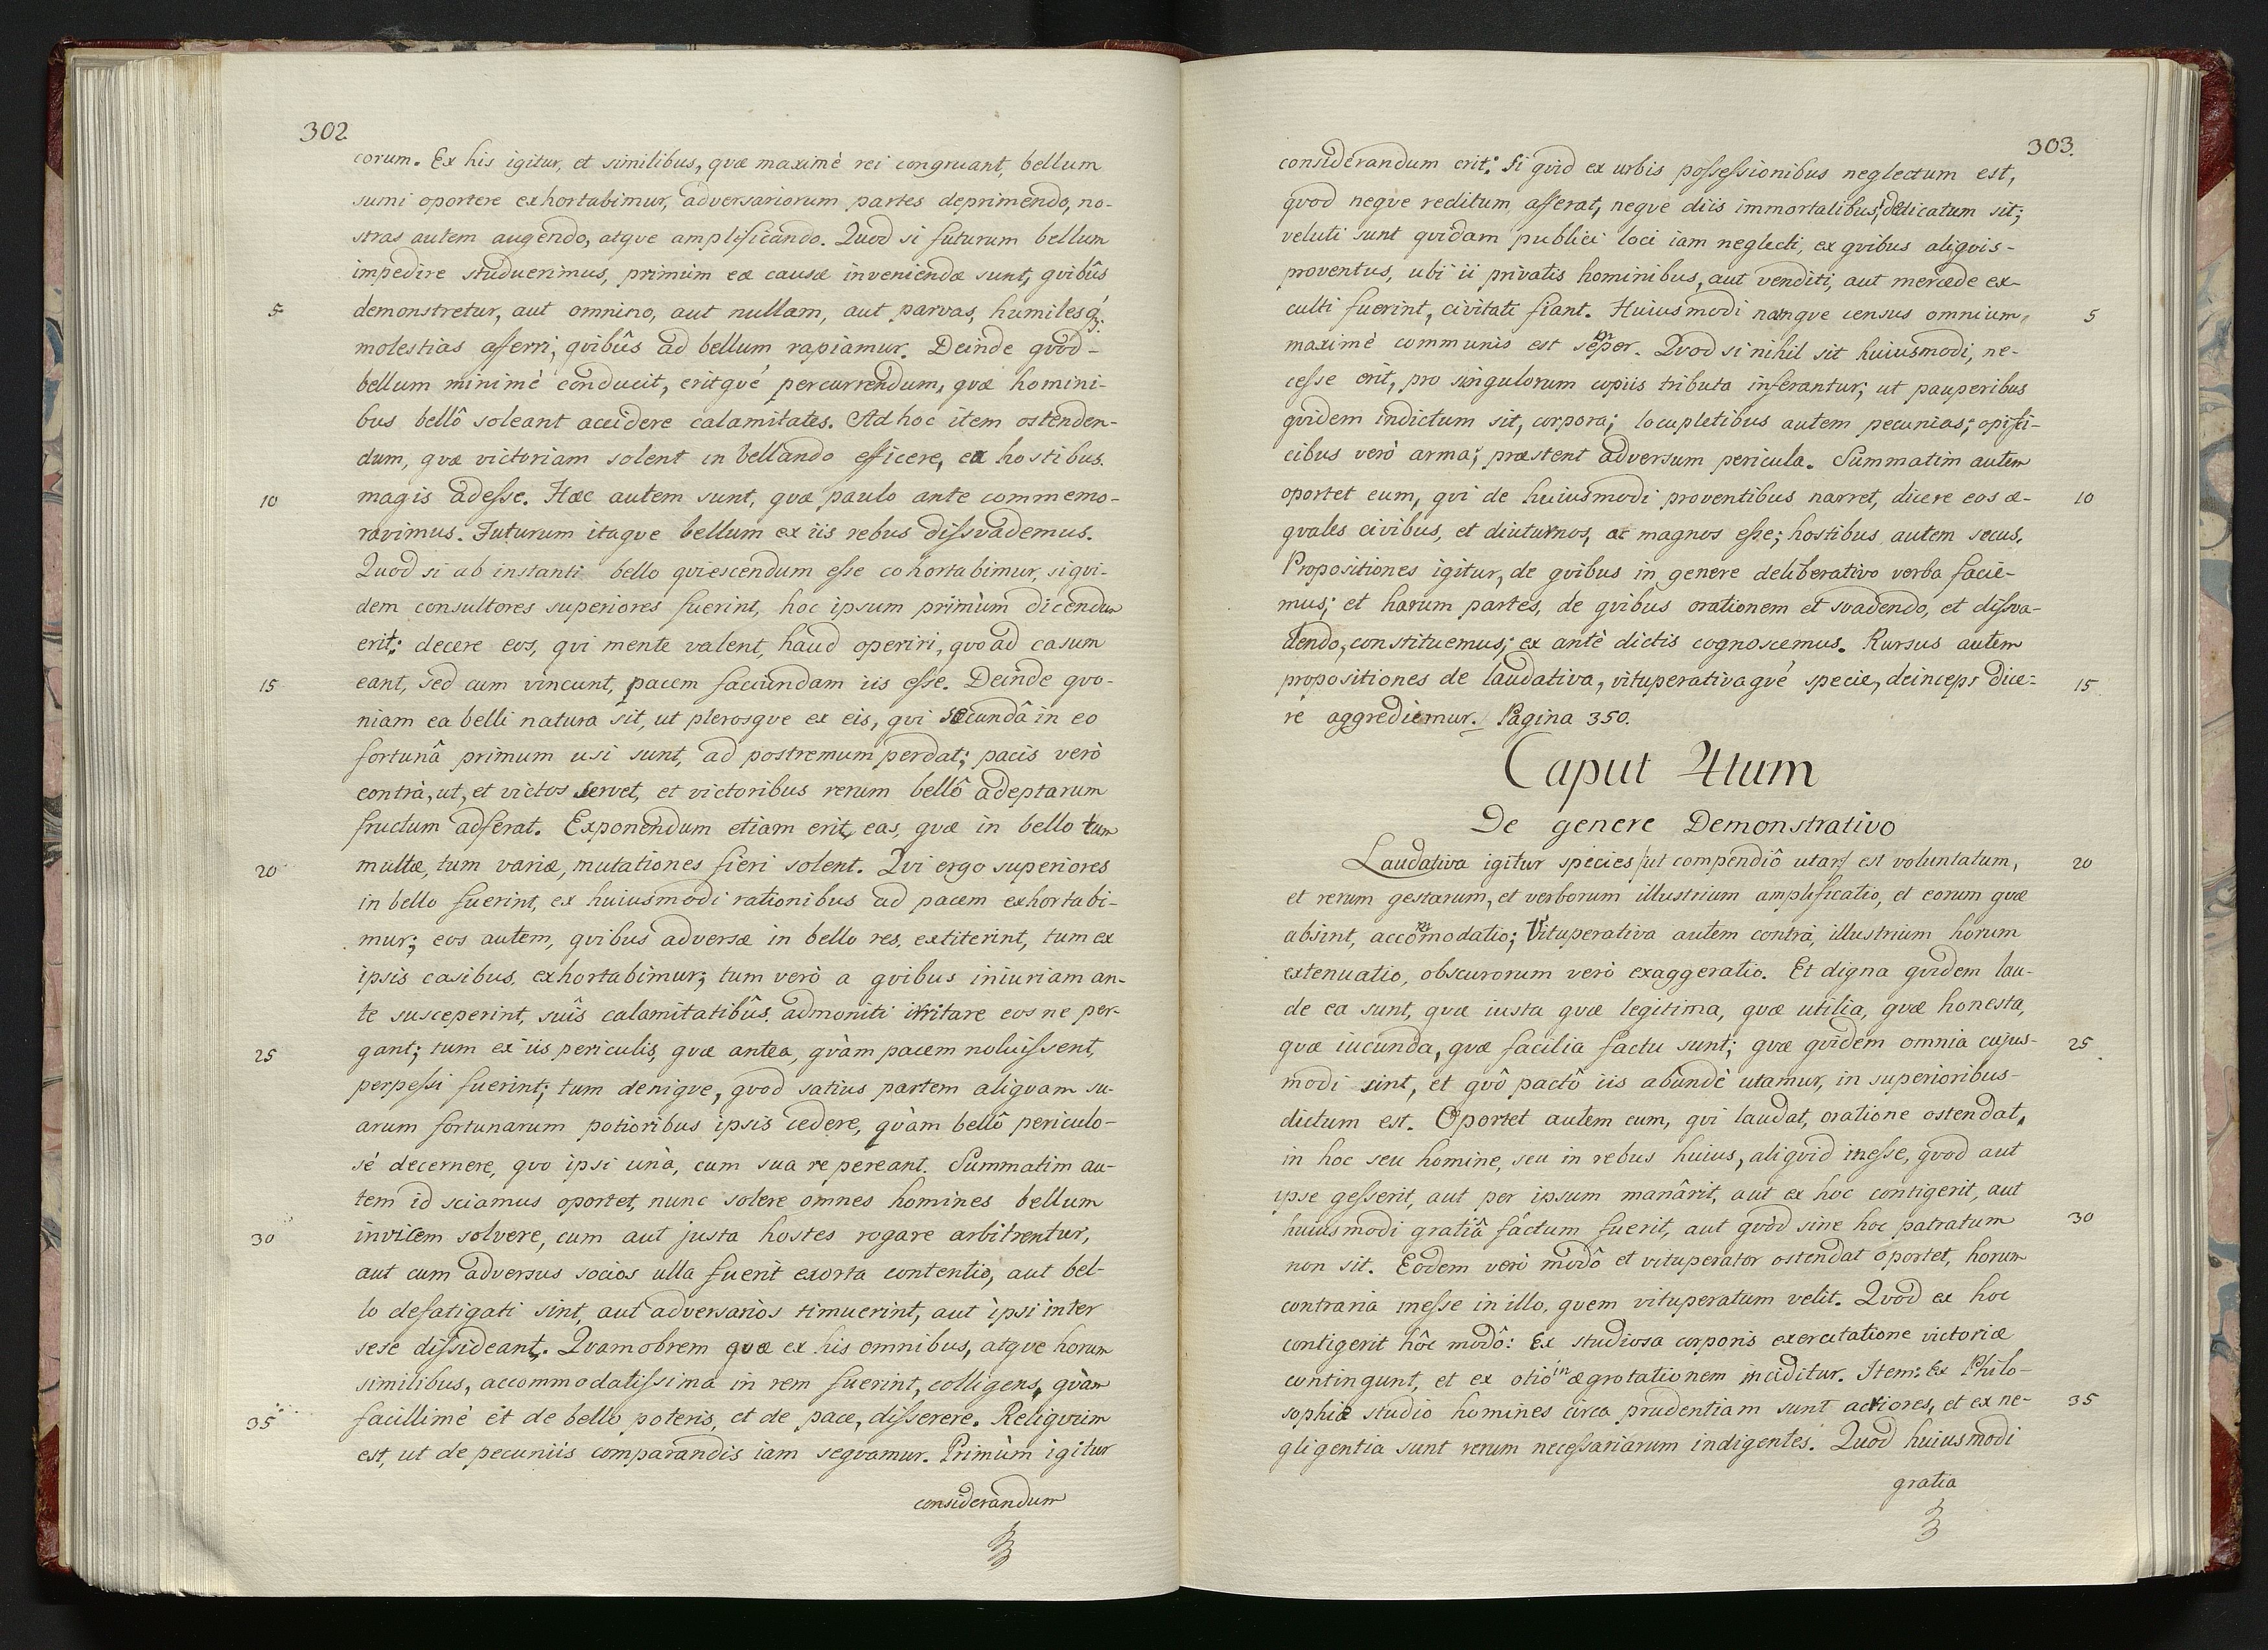 302
corum. Ex his igitur, et similibus, qvæ maximè rei congruant, bellum
sumi oportere exhortabimur, adversariorum partes deprimendo, no-
stras autem augendo, atqve amplificando. Qvod si futurum bellum
impedire studuerimus, primùm eæ causæ inveniendæ sunt, qvibûs
5 demonstretur, aut omnino, aut nullam, aut parvas, humilesq́;
molestias afferri, qvibûs ad bellum rapiamur. Deinde qvòd-
bellum minimè conducit, eritqvé percurrendum, qvæ homini-
bus bellô soleant accidere calamitates. Ad hoc item ostenden-
dum, qvæ victoriam solent in bellando efficere, ea hostibus.
10 magis adesse. Hæc autem sunt, qvæ paulo ante commemo-
ravimus. Futurum itaqve bellum ex iis rebus dissvademus.
Qvod si ab instanti bello qviescendum esse cohortabimur, siqvi-
dem consultores superiores fuerint, hoc ipsum primùm dicendum
erit: decere eos, qvi mente valent, haud operiri, qvoad casum
15 eant, sed cum vincunt, pacem faciundam iis esse. Deinde qvo-
niam ea belli natura sit, ut plerosqve ex eis, qvi secundâ in eo
fortunâ primum usi sunt, ad postremum perdat; pacis verò
contrà, ut, et victos servet, et victoribus rerum bellô adeptarum
fructum adferat. Exponendum etiam erit, eas, qvæ in bello tum
20 multæ, tum variæ, mutationes fieri solent. Qvi ergo superiores
in bello fuerint, ex huiusmodi rationibus ad pacem exhortabi-
mur; eos autem, qvibus adversæ in bello res, extiterint, tum ex
ipsis casibus, exhortabimur; tum verò a qvibus iniuriam an-
te susceperint, suîs calamitatibûs, admoniti irritare eos ne per-
25 gant; tum ex iis periculis, qvæ antea, qvàm pacem noluissent,
perpessi fuerint; tum deniqve, qvod satius partem aliqvam su-
arum fortunarum potioribus ipsis cedere, qvàm bellô periculo-
sè decernere, qvo ipsi unà, cum sua re pereant. Summatim au-
tem id sciamus oportet, nunc solere omnes homines bellum
30 invicem solvere, cum aut justa hostes rogare arbitrentur,
aut cum adversus socios ulla fuerit exorta contentio, aut bel-
lo defatigati sint, aut adversarios timuerint, aut ipsi inter
sese dissideant. Qvamobrem qvæ ex his omnibus, atqve horum
similibus, accommodatissima in rem fuerint, colligens, qvàm
35 facillimè et de bello poteris, et de pace, disserere. Reliqvum
est, ut de pecuniis comparandis iam seqvamur. Primùm igitur
considerandum
303.
considerandum erit: Si qvid ex urbis possessionibus neglectum est,
qvod neqve reditum afferat, neqve diis immortalibus, dedicatum sit;
veluti sunt qvidam publici loci iam neglecti, ex qvibus aliqvis-
proventus, ubi ii privatis hominibus, aut venditi, aut mercede ex-
culti fuerint, civitati fiant. Huiusmodi namqve census omnium, 5
maximè communis est semper. Qvod si nihil sit huiusmodi, ne-
cesse erit, pro singulorum copiis tributa inferantur; ut pauperibus
qvidem indictum sit, corpora; locupletibus autem pecunias; opifi-
cibus verò arma; præstent adversum pericula. Summatim autem
oportet eum, qvi de huiusmodi proventibus narret, dicere eos æ- 10
qvales civibus, et diuturnos, et magnos esse; hostibus autem secus.
Propositiones igitur, de qvibus in genere deliberativo verba facie-
mus; et harum partes, de qvibus orationem et svadendo, et dissva-
dendo, constituemus; ex antè dictis cognoscemus. Rursus autem
propositiones de laudativa, vituperativaqvé specie, deinceps dice- 15
re aggrediemur. Pagina 350.
Caput 4tum
De genere Demonstrativo
Laudativa igitur species /ut compendiô utar/ est voluntatum, 20
et rerum gestarum, et verborum illustrium amplificatio, et eorum qvæ
absint, accommodatio; Vituperativa autem contrà, illustrium horum
extenuatio, obscurorum verò exaggeratio. Et digna qvidem lau-
de ea sunt, qvæ iusta qvæ legitima, qvæ utilia, qvæ honesta,
qvæ iucunda, qvæ facilia factu sunt; qvæ qvidem omnia cujus- 25
modi sint, et qvô pactô iis abundè utamur, in superioribus-
dictum est. Oportet autem eum, qvi laudat, oratione ostendat,
in hoc seu homine, seu in rebus huius, aliqvid inesse, qvod aut
ipse gesserit, aut per ipsum manârit, aut ex hoc contigerit, aut
huiusmodi gratiâ fâctum fuerit, aut qvòd sine hoc patratum 30
non sit. Eodem verò modô et vituperator ostendat oportet, horum
contraria inesse in illo, qvem vituperatum velit. Qvod ex hoc
contigerit hôc modô: Ex studiosa corporis exercitatione victoriæ
contingunt, et ex otiô in ægrotationem inciditur. Item: Ex Philo-
sophiæ studio homines circa prudentiam sunt acriores, et ex ne- 35
gligentia sunt rerum necessariarum indigentes. Qvod huiusmodi
gratia